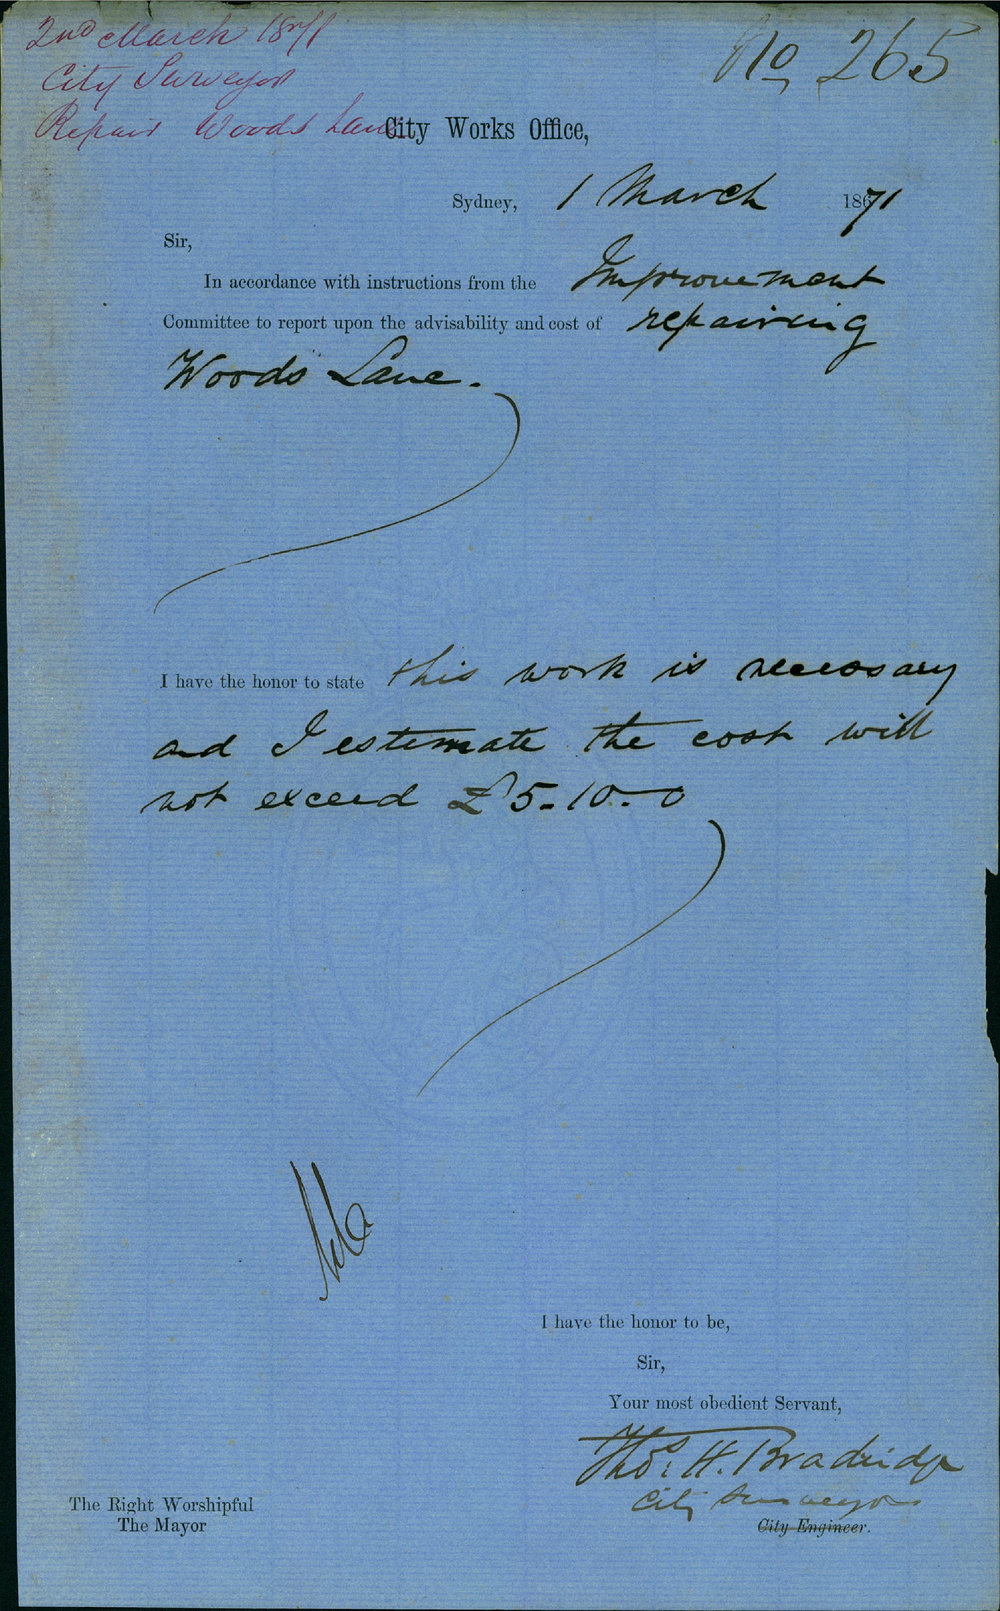 2nd March 1871
No 265
City Surveyor
Repair Woods Lane
City Works Office,
Sydney, 1 March 1871
Sir,
In accordance with instructions from the Improvement
Committee to report upon the advisability and cost of repairing
Woods Lane.
I have the honor to state this work is necessary
and I estimate the cost will
not exceed £5-10-0
I have the honor to be,
Sir,
Your most obedient Servant,
Thos. H. Bradridge
City Surveyor
The Right Worshipful
City Engineer.
The Mayor